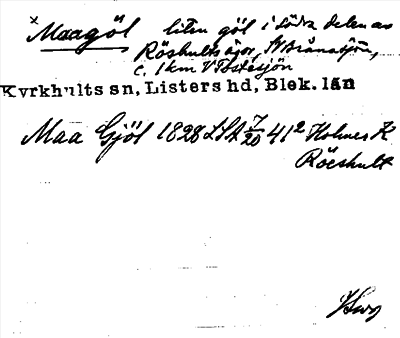 x Maagöl liten göl i södra delen av
Röshults ägor,
c. 1 km V
Kyrkhults sn, Listers hd, Blek. län
Maa Gjöl 1828 LSA 7/20 41² Holmes K
Röeshult